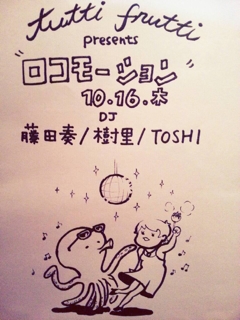 tutti frutti
presents
"ロコモーション"
10.16.木
DJ
藤田奏/樹里/TOSHI